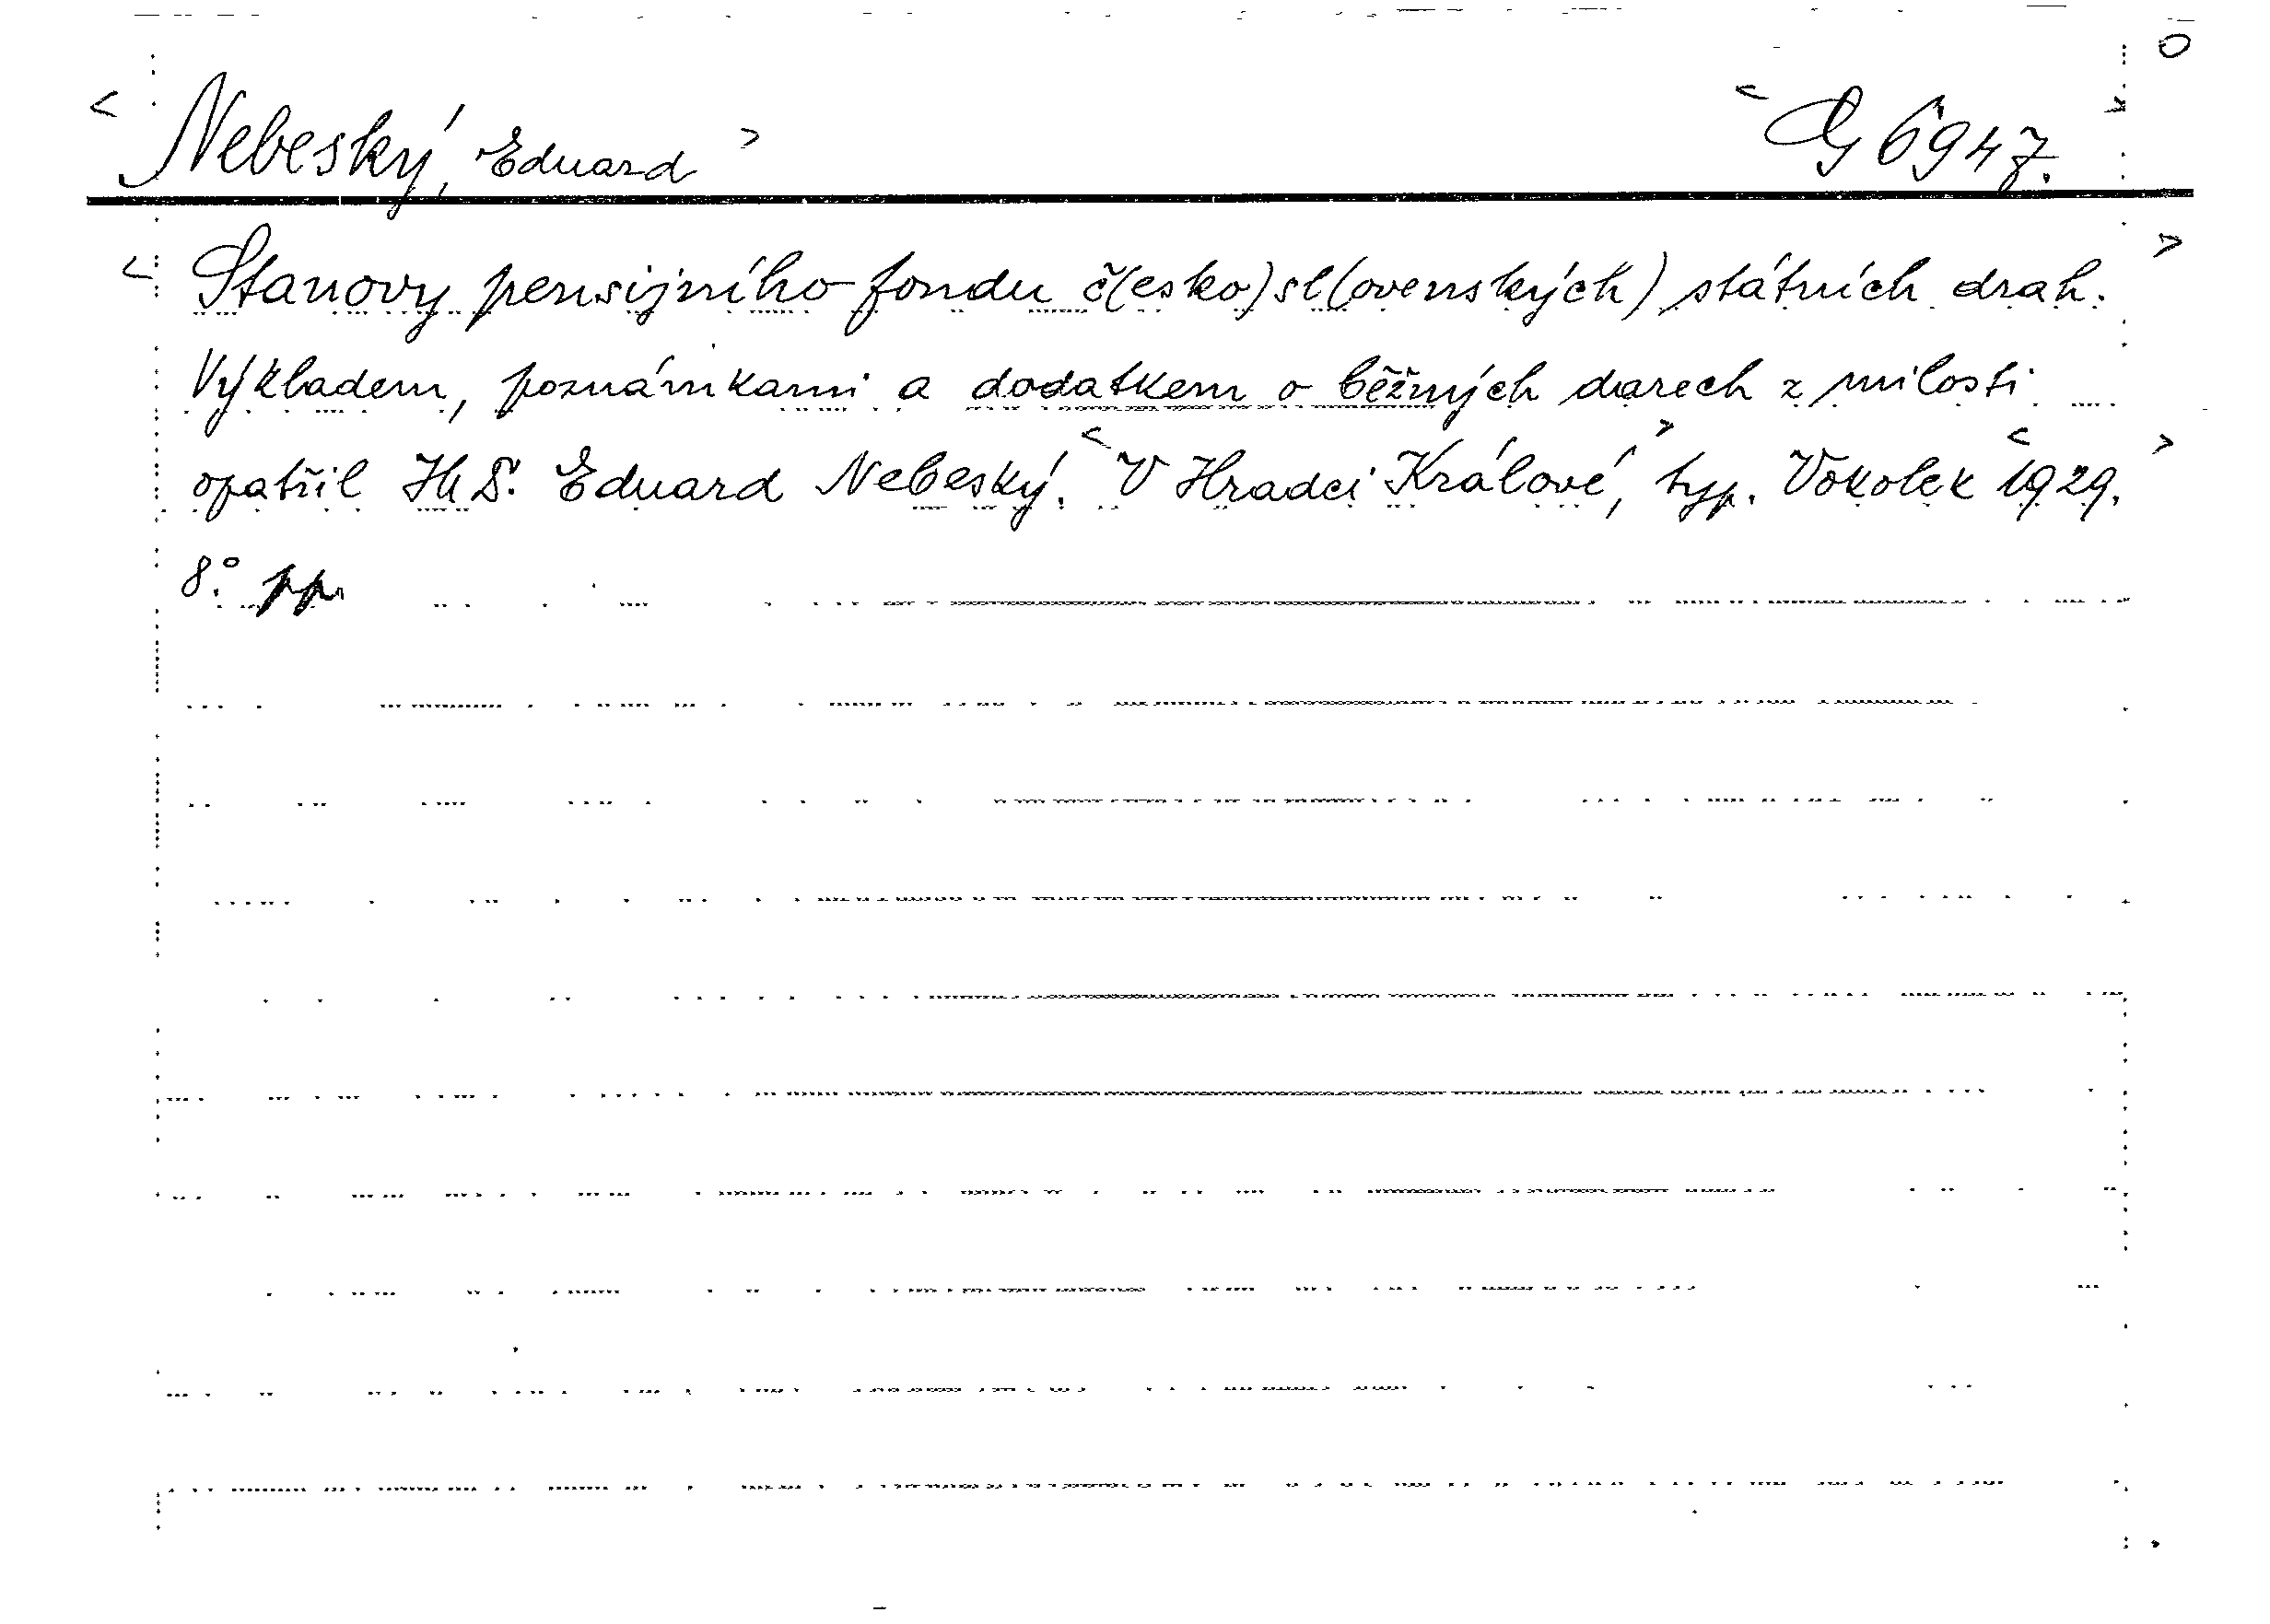 O
< Nebeský, Eduard > < G 6947. >
< Stanovy pensijního fondu č(esko)sl(ovenských) státních drah. >
Výkladem, poznámkami a dodatkem o běžných darech z milosti
opatřil Eduard Nebeský. < V Hradci Králové, > typ. Vokolek < 1929. >
8° pp.